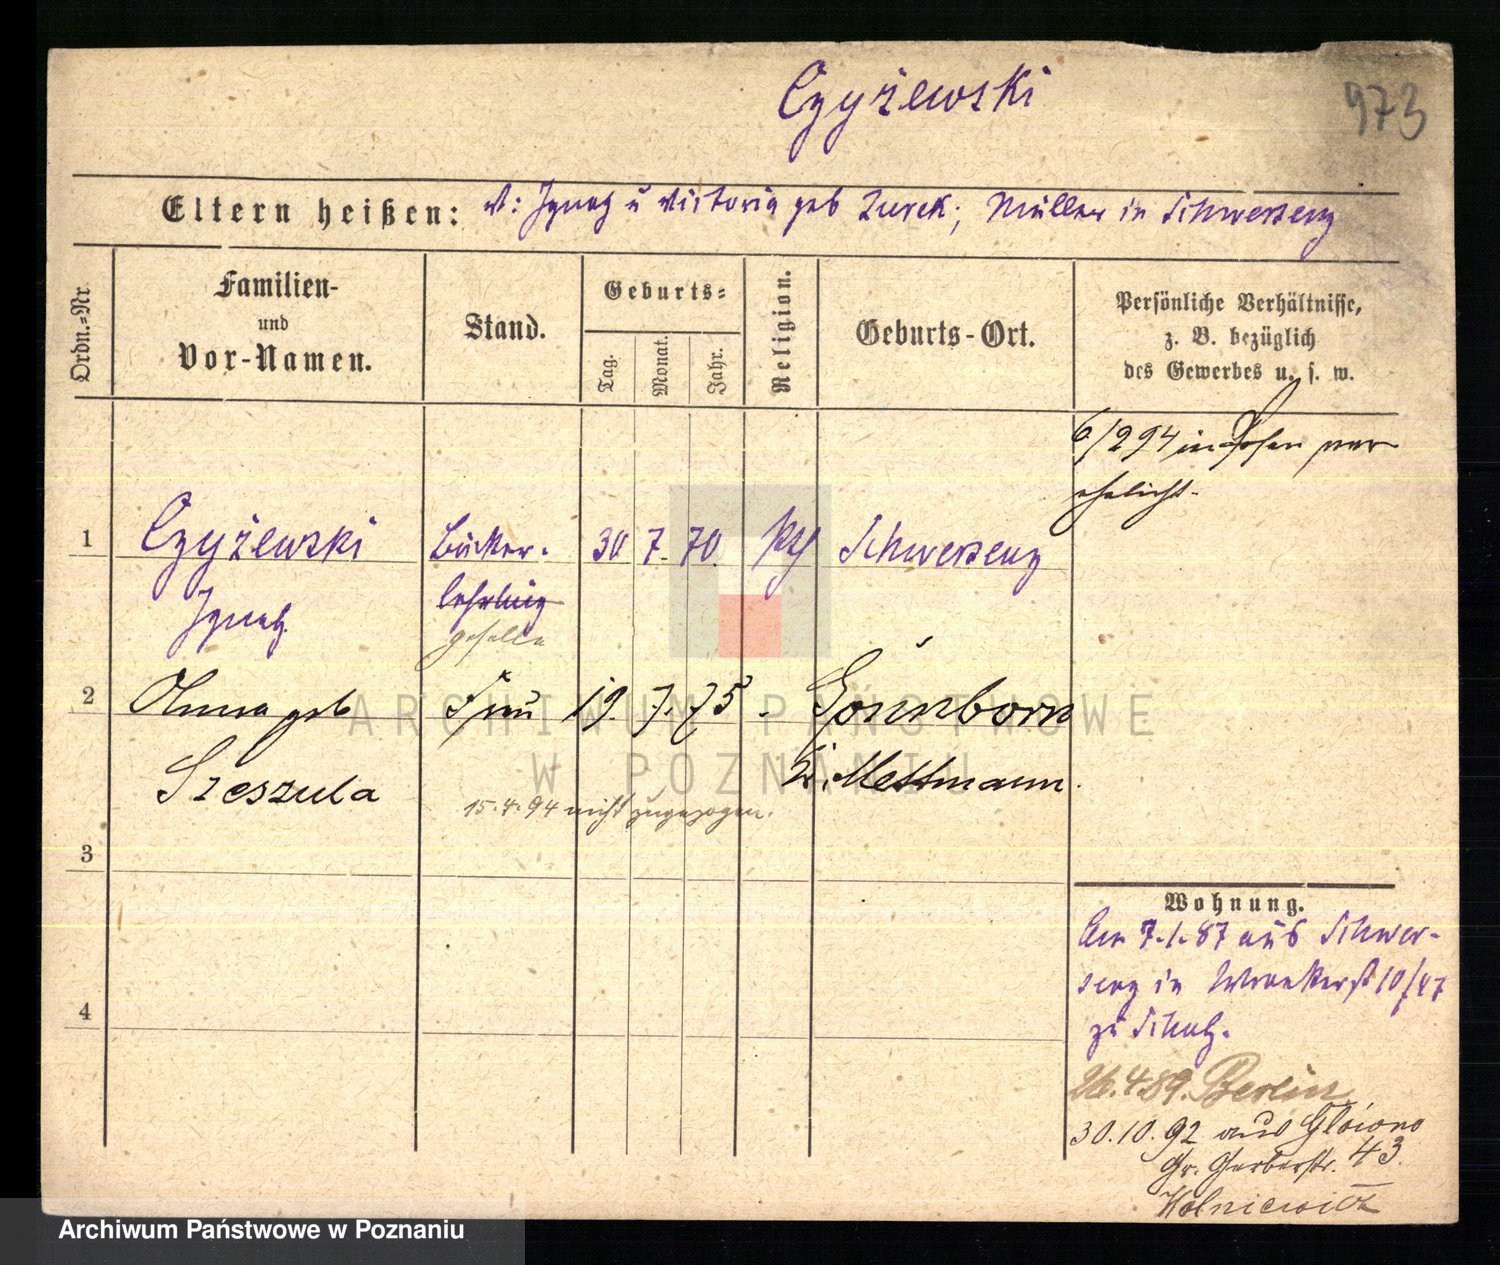 Czyżewski
973
Eltern heißen: V: Ignatz u Victoria geb Zurek; Müller in Schwersenz
Ordn.-Nr.
Familien-
und
Vor-Namen.
Stand.
Geburts-
Tag.
Monat.
Jahr.
Religion.
Geburts-Ort.
Persönliche Verhältnisse,
z. B. bezüglich
des Gewerbes u. s. w.
6/2 94 in Posen ver
ehelicht.
1
Czyżewski
Ignatz
Bäcker-
lehrling
geselle
30 7. 70.
Schwersenz
2
geb
Szeszula
Frau
19. 7. 75.
Kr. Mettmann.
15.4.94 nicht zugezogen.
3
4
Wohnung.
Am 7.1.87 aus Schwer-
senz in Wronkerst 10/47
zu Schulz.
26.4.89. Berlin
30.10.92 aus
Gr. Gerberstr. 43.
ARCHIWUM PAŃSTWOWE
W POZNANIU
Archiwum Państwowe w Poznaniu